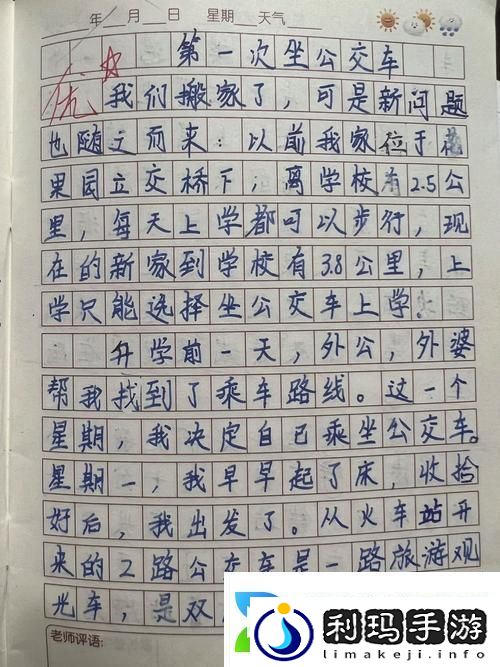 年 月 日 星期 天气
第一次坐公交车
优
我们搬家了，可是新问题
也随之而来：以前我家位于花
果园立交桥下，离学校有2.5公
里，每天上学都可以步行，现
在的新家到学校有3.8公里，上
学只能选择坐公交车上学。
升学前一天，外公，外婆
帮我找到了乘车路线。过一个
星期，我决定自己乘坐公交车。
星期一，我早早起了床，收拾
好后，我出发了。从火车站开
来的2路公交车是一路旅游观
光车，是双
老师评语：
利玛手游
limakeji.info.info